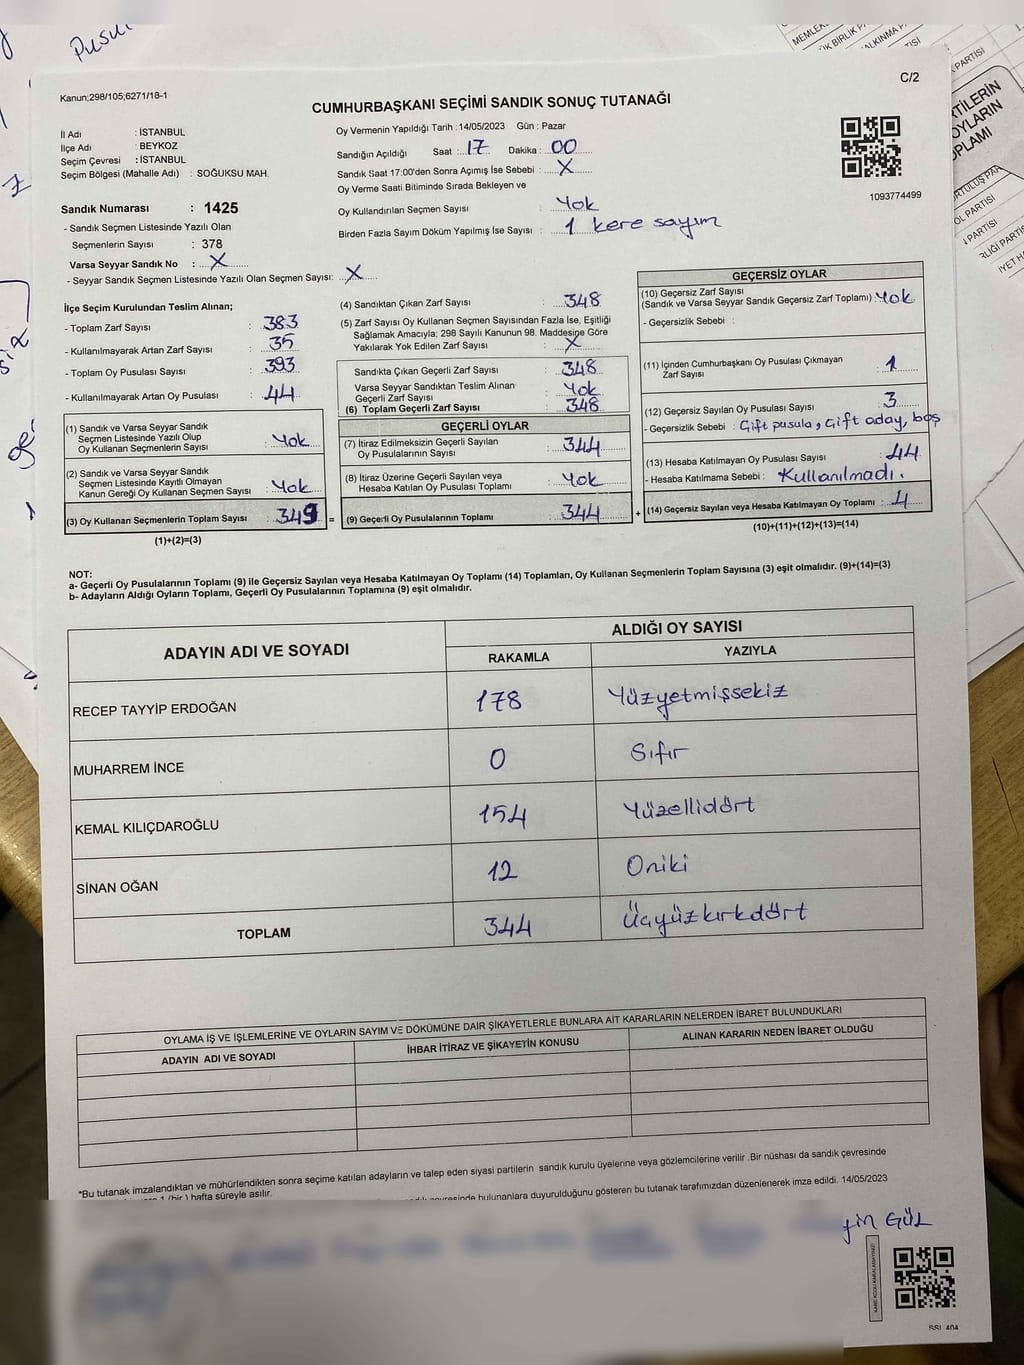 Pusul
MEMLEK
ÜK BİRLİK PA
ALKINMA P
TİSİ
PARTİSİ
C/2
Kanun;298/105;6271/18-1
CUMHURBAŞKANI SEÇİMİ SANDIK SONUÇ TUTANAĞI
İl Adı : İSTANBUL
İlçe Adı : BEYKOZ
Seçim Çevresi : İSTANBUL
Seçim Bölgesi (Mahalle Adı) : SOĞUKSU MAH.
Sandık Numarası : 1425
- Sandık Seçmen Listesinde Yazılı Olan
Seçmenlerin Sayısı : 378
Varsa Seyyar Sandık No : X
- Seyyar Sandık Seçmen Listesinde Yazılı Olan Seçmen Sayısı: X
Oy Vermenin Yapıldığı Tarih : 14/05/2023 Gün : Pazar
Sandığın Açıldığı Saat : 17 Dakika : 00
Sandık Saat 17:00'den Sonra Açımış İse Sebebi : X
Oy Verme Saati Bitiminde Sırada Bekleyen ve
Oy Kullandırılan Seçmen Sayısı : Yok
Birden Fazla Sayım Döküm Yapılmış İse Sayısı : 1 kere sayım
1093774499
İlçe Seçim Kurulundan Teslim Alınan;
- Toplam Zarf Sayısı : 383
- Kullanılmayarak Artan Zarf Sayısı : 35
- Toplam Oy Pusulası Sayısı : 393
- Kullanılmayarak Artan Oy Pusulası : 44
(1) Sandık ve Varsa Seyyar Sandık
Seçmen Listesinde Yazılı Olup
Oy Kullanan Seçmenlerin Sayısı : Yok
(2) Sandık ve Varsa Seyyar Sandık
Seçmen Listesinde Kayıtlı Olmayan
Kanun Gereği Oy Kullanan Seçmen Sayısı : Yok
(3) Oy Kullanan Seçmenlerin Toplam Sayısı : 349 =
(1)+(2)=(3)
(4) Sandıktan Çıkan Zarf Sayısı : 348
(5) Zarf Sayısı Oy Kullanan Seçmen Sayısından Fazla İse, Eşitliği
Sağlamak Amacıyla; 298 Sayılı Kanunun 98. Maddesine Göre
Yakılarak Yok Edilen Zarf Sayısı : X
Sandıkta Çıkan Geçerli Zarf Sayısı : 348
Varsa Seyyar Sandıktan Teslim Alınan
Geçerli Zarf Sayısı : Yok
(6) Toplam Geçerli Zarf Sayısı : 348
GEÇERLİ OYLAR
(7) İtiraz Edilmeksizin Geçerli Sayılan
Oy Pusulalarının Sayısı : 344
(8) İtiraz Üzerine Geçerli Sayılan veya
Hesaba Katılan Oy Pusulası Toplamı : Yok
(9) Geçerli Oy Pusulalarının Toplamı : 344 +
GEÇERSİZ OYLAR
(10) Geçersiz Zarf Sayısı
(Sandık ve Varsa Seyyar Sandık Geçersiz Zarf Toplamı) : Yok
- Geçersizlik Sebebi :
(11) İçinden Cumhurbaşkanı Oy Pusulası Çıkmayan
Zarf Sayısı : 1
(12) Geçersiz Sayılan Oy Pusulası Sayısı : 3
- Geçersizlik Sebebi : Çift pusula, çift aday, boş
(13) Hesaba Katılmayan Oy Pusulası Sayısı : 44
- Hesaba Katılmama Sebebi : Kullanılmadı.
(14) Geçersiz Sayılan veya Hesaba Katılmayan Oy Toplamı : 4
(10)+(11)+(12)+(13)=(14)
NOT:
a- Geçerli Oy Pusulalarının Toplamı (9) ile Geçersiz Sayılan veya Hesaba Katılmayan Oy Toplamı (14) Toplamları, Oy Kullanan Seçmenlerin Toplam Sayısına (3) eşit olmalıdır. (9)+(14)=(3)
b- Adayların Aldığı Oyların Toplamı, Geçerli Oy Pusulalarının Toplamına (9) eşit olmalıdır.
ADAYIN ADI VE SOYADI
ALDIĞI OY SAYISI
RAKAMLA YAZIYLA
RECEP TAYYİP ERDOĞAN 178 Yüzyetmişsekiz
MUHARREM İNCE 0 Sıfır
KEMAL KILIÇDAROĞLU 154 Yüzellidört
SİNAN OĞAN 12 Oniki
TOPLAM 344 Üçyüzkırkdört
OYLAMA İŞ VE İŞLEMLERİNE VE OYLARIN SAYIM VE DÖKÜMÜNE DAİR ŞİKAYETLERLE BUNLARA AİT KARARLARIN NELERDEN İBARET BULUNDUKLARI
ADAYIN ADI VE SOYADI İHBAR İTİRAZ VE ŞİKAYETİN KONUSU ALINAN KARARIN NEDEN İBARET OLDUĞU
*Bu tutanak imzalandıktan ve mühürlendikten sonra seçime katılan adayların ve talep eden siyasi partilerin sandık kurulu üyelerine veya gözlemcilerine verilir .Bir nüshası da sandık çevresinde
1 (bir ) hafta süreyle asılır.
bulunanlara duyurulduğunu gösteren bu tutanak tarafımızdan düzenlenerek imza edildi. 14/05/2023
GÜL